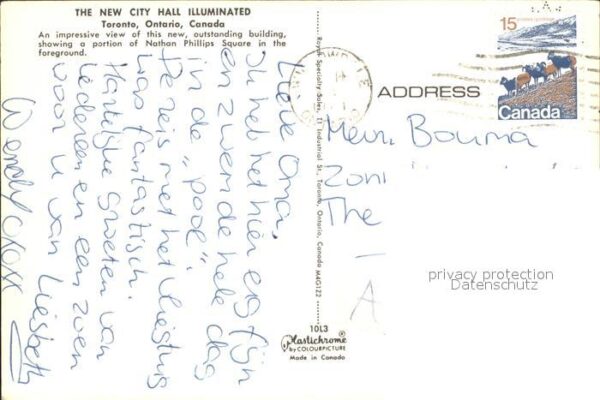 THE NEW CITY HALL ILLUMINATED
Toronto, Ontario, Canada
An impressive view of this new, outstanding building,
showing a portion of Nathan Phillips Square in the
foreground.
Lieve Oma,
Ik heb het hier erg fijn
en zwem de hele dag
in de "pool".
De reis met het vliegtuig
was fantastisch.
Hartelijke groeten van
iedereen en een zoen
voor u van Liesbeth
Royal Specialty Sales, 11 Industrial St., Toronto, Ontario, Canada M4G1Z2
10L3
Plastichrome®
by COLOURPICTURE
Made in Canada
15
Canada
ADDRESS
Mevr. Bouma
The
A
privacy protection
Datenschutz